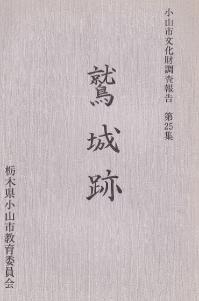 小山市文化財調査報告 第25集
鷲城跡
栃木県小山市教育委員会